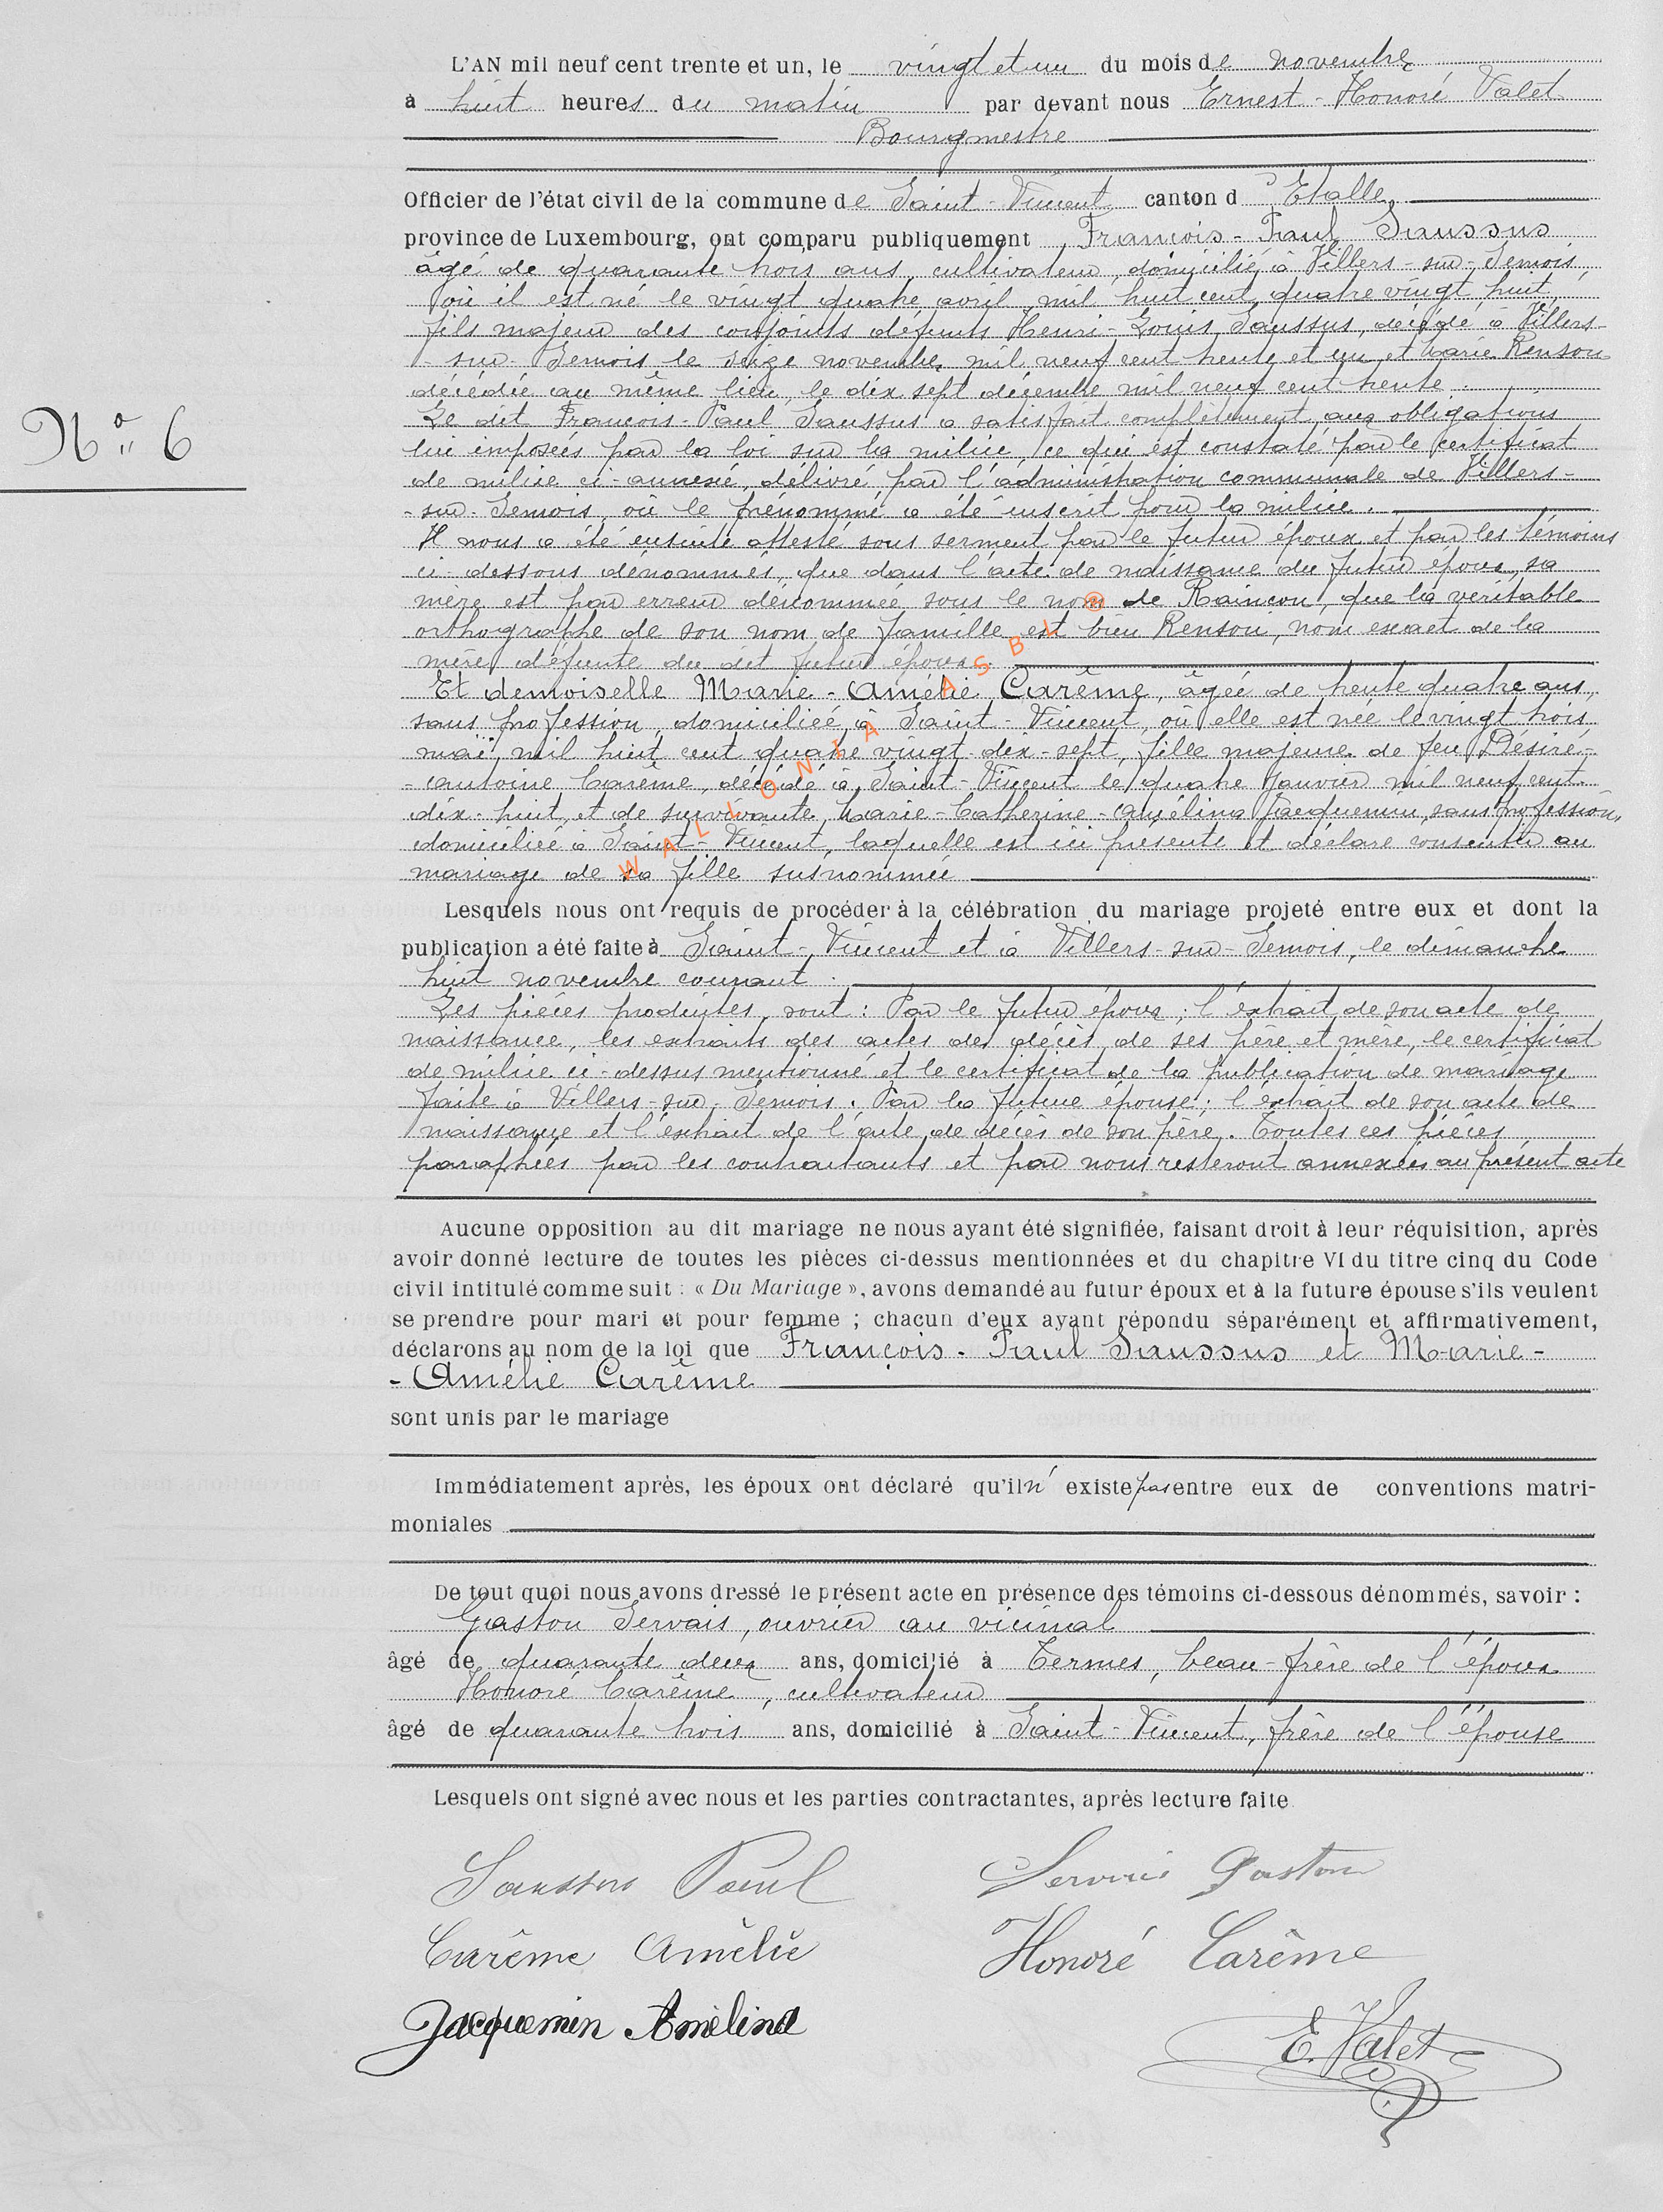 L'AN mil neuf cent trente et un, le vingt et un du mois de novembre
à huit heures du matin par devant nous Ernest-Honoré Valet
Bourgmestre
Officier de l'état civil de la commune de Saint-Vincent canton d'Etalle,
province de Luxembourg, ont comparu publiquement François-Paul Saussus
âgé de quarante trois ans, cultivateur, domicilié à Villers-sur-Semois,
où il est né le vingt quatre avril mil huit cent quatre vingt huit,
fils majeur des conjoints défunts Henri-Louis Saussus, décédé à Villers-
-sur-Semois, le seize novembre mil neuf cent trente et un et Marie Renson
décédée au même lieu, le dix sept décembre mil neuf cent trente.
Le dit François-Paul Saussus a satisfait complètement aux obligations
lui imposées par la loi sur la milice, ce qui est constaté par le certificat
de milice ci-annexé, délivré par l'administration communale de Villers-
-sur-Semois, où le prénommé a été inscrit pour la milice.
Il nous a été ensuite attesté sous serment par le futur époux et par les témoins
ci-dessous dénommés, que dans l'acte de naissance du futur époux, sa
mère est par erreur dénommée sous le nom de Rainçon, que la véritable
orthographe de son nom de famille est bien Renson, nom exact de la
mère défunte du dit futur époux.
Et demoiselle Marie-Amélie Carême, âgée de trente quatre ans,
sans profession, domiciliée à Saint-Vincent, où elle est née le vingt trois
mai mil huit cent quatre vingt-dix-sept, fille majeure de feu Désiré-
-Antoine Carême, décédé à Saint-Vincent le quatre janvier mil neuf cent
dix-huit, et de survivante, Marie-Catherine-Amélina Jacquemin, sans profession,
domiciliée à Saint-Vincent, laquelle est ici présente et déclare consentir au
mariage de sa fille susnommée
WALLONIA ASBL ®
N° 6
Lesquels nous ont requis de procéder à la célébration du mariage projeté entre eux et dont la
publication a été faite à Saint-Vincent et à Villers-sur-Semois, le dimanche
huit novembre courant.
Les pièces produites, sont : Par le futur époux ; l'extrait de son acte de
naissance, les extraits des actes de décès de ses père et mère, le certificat
de milice ci-dessus mentionné et le certificat de la publication de mariage
faite à Villers-sur-Semois. Par la future épouse ; l'extrait de son acte de
naissance et l'extrait de l'acte de décès de son père. Toutes ces pièces
paraphées par les contractants et par nous resteront annexées au présent acte
Aucune opposition au dit mariage ne nous ayant été signifiée, faisant droit à leur réquisition, après
avoir donné lecture de toutes les pièces ci-dessus mentionnées et du chapitre VI du titre cinq du Code
civil intitulé comme suit : « Du Mariage », avons demandé au futur époux et à la future épouse s'ils veulent
se prendre pour mari et pour femme ; chacun d'eux ayant répondu séparément et affirmativement,
déclarons au nom de la loi que François-Paul Saussus et Marie-
-Amélie Carême
sont unis par le mariage
Immédiatement après, les époux ont déclaré qu'il n'existe pas entre eux de conventions matri-
moniales
De tout quoi nous avons dressé le présent acte en présence des témoins ci-dessous dénommés, savoir :
Gaston Servais, ouvrier au vicinal
âgé de quarante deux ans, domicilié à Termes, beau-frère de l'époux
Honoré Carême, cultivateur
âgé de quarante trois ans, domicilié à Saint-Vincent, frère de l'épouse
Lesquels ont signé avec nous et les parties contractantes, après lecture faite
Saussus Paul Servais Gaston
Carême Amélie Honoré Carême
Jacquemin Amélina E. Valet